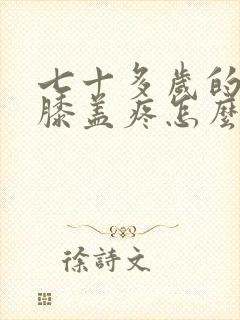 七十多歲的
膝盖疼怎麼
徐詩文